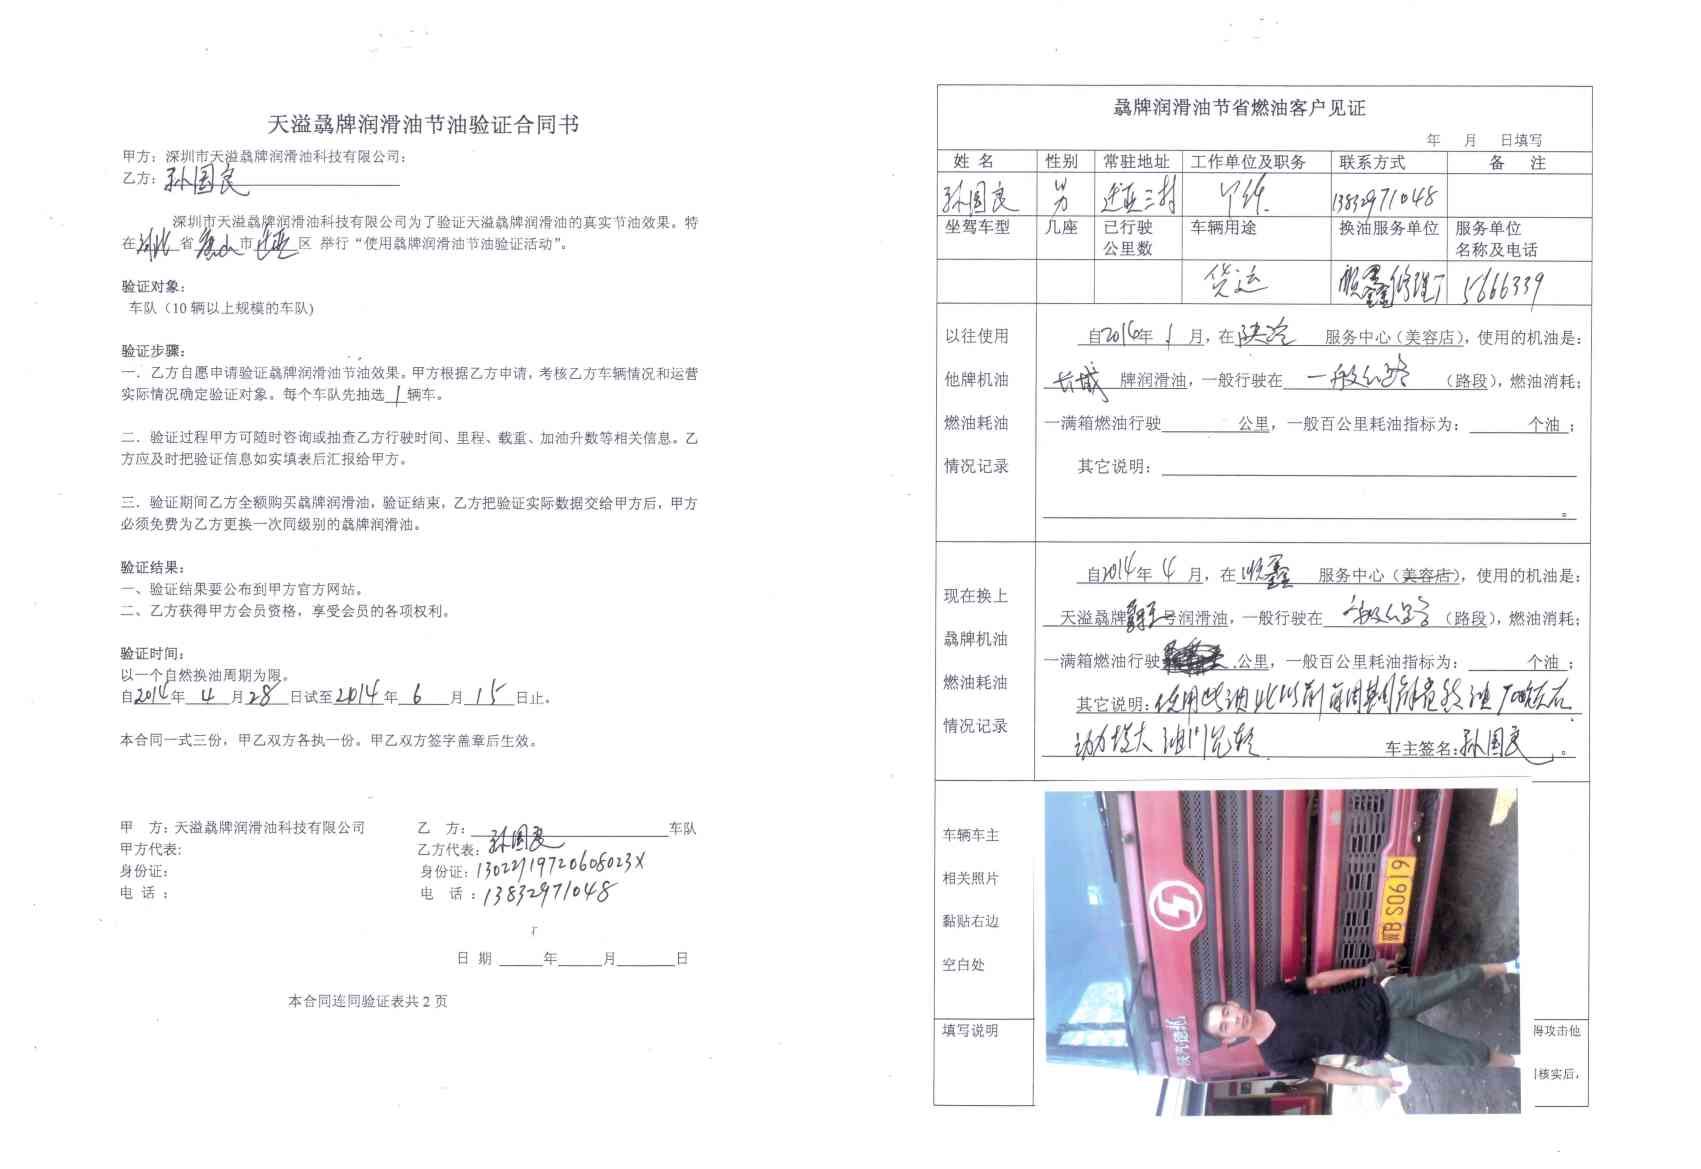 天溢骉牌润滑油节油验证合同书
甲方：深圳市天溢骉牌润滑油科技有限公司；
乙方：孙国良
深圳市天溢骉牌润滑油科技有限公司为了验证天溢骉牌润滑油的真实节油效果。特
在河北省唐山市迁西区 举行“使用骉牌润滑油节油验证活动”。
验证对象：
车队（10辆以上规模的车队)
验证步骤：
一．乙方自愿申请验证骉牌润滑油节油效果。甲方根据乙方申请，考核乙方车辆情况和运营
实际情况确定验证对象。每个车队先抽选1辆车。
二．验证过程甲方可随时咨询或抽查乙方行驶时间、里程、载重、加油升数等相关信息。乙
方应及时把验证信息如实填表后汇报给甲方。
三．验证期间乙方全额购买骉牌润滑油，验证结束，乙方把验证实际数据交给甲方后，甲方
必须免费为乙方更换一次同级别的骉牌润滑油。
验证结果：
一、验证结果要公布到甲方官方网站。
二、乙方获得甲方会员资格，享受会员的各项权利。
验证时间：
以一个自然换油周期为限。
自2014年 4 月28日试至2014年 6 月 15 日止。
本合同一式三份，甲乙双方各执一份。甲乙双方签字盖章后生效。
甲 方：天溢骉牌润滑油科技有限公司
甲方代表：
身份证：
电 话：
乙 方： 车队
乙方代表：孙国良
身份证：13022719720608023X
电 话：13832971048
日 期 年 月 日
本合同连同验证表共2页
骉牌润滑油节省燃油客户见证
年 月 日填写
姓 名 性别 常驻地址 工作单位及职务 联系方式 备 注
孙国良 男 三村 个体 13832971048
坐驾车型 几座 已行驶公里数 车辆用途 换油服务单位 服务单位名称及电话
货运 顺鑫修理厂 5666339
以往使用
他牌机油
燃油耗油
情况记录
自2014年 1 月，在 服务中心（美容店），使用的机油是：
长城 牌润滑油，一般行驶在 一般公路 （路段），燃油消耗；
一满箱燃油行驶 公里，一般百公里耗油指标为： 个油；
其它说明：
。
现在换上
骉牌机油
燃油耗油
情况记录
自2014年 4 月，在顺鑫 服务中心（美容店），使用的机油是：
天溢骉牌 号润滑油，一般行驶在 一般公路 （路段），燃油消耗；
一满箱燃油行驶 公里，一般百公里耗油指标为： 个油；
其它说明：使用此油比以前 周期 油 左右
动力增大 油门 轻 车主签名：孙国良。
车辆车主
相关照片
黏贴右边
空白处
冀B S0619
填写说明
得攻击他
核实后，